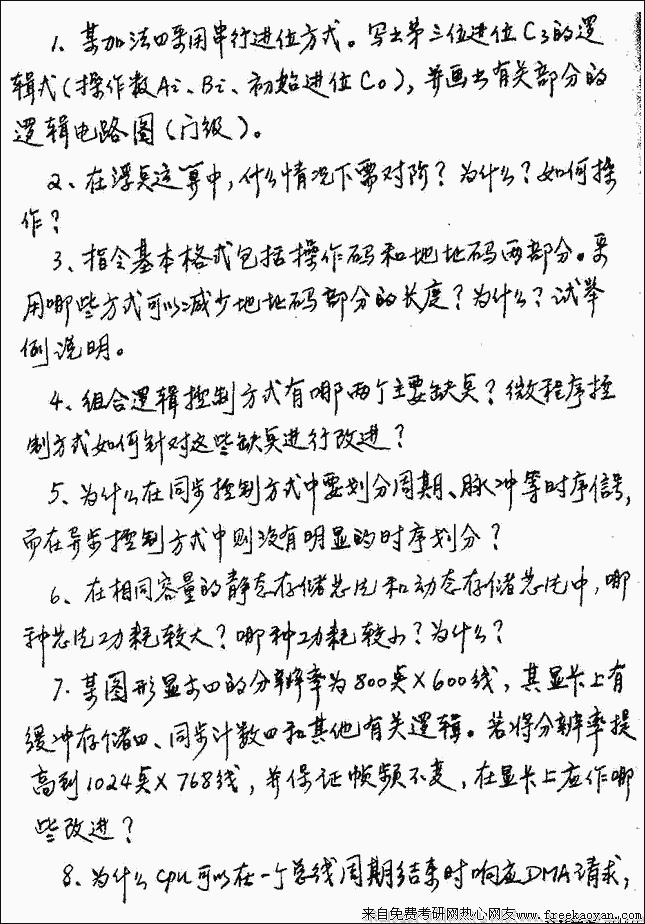 1. 某加法四采用串行进位方式。写出第三位进位C3的逻
辑式(操作数Ai、Bi、初始进位C0),并画出有关部分的
逻辑电路图(门级)。
2、在浮点运算中,什么情况下需对阶?为什么?如何操
作?
3、指令基本格式包括操作码和地址码两部分。采
用哪些方式可以减少地址码部分的长度?为什么?试举
例说明。
4、组合逻辑控制方式有哪两个主要缺点?微程序控
制方式如何针对这些缺点进行改进?
5、为什么在同步控制方式中要划分周期、脉冲等时序信号,
而在异步控制方式中则没有明显的时序划分?
6、在相同容量的静态存储芯片和动态存储芯片中,哪
种芯片功耗较大?哪种功耗较小?为什么?
7. 某图形显示四的分辨率为800点×600线,其显卡上有
缓冲存储四、同步计数四和其他有关逻辑。若将分辨率提
高到1024点×768线,并保证帧频不变,在显卡上应作哪
些改进?
8、为什么CPU可以在一个总线周期结束时响应DMA请求,
来自免费考研网热心网友,www.freekaoyan.com